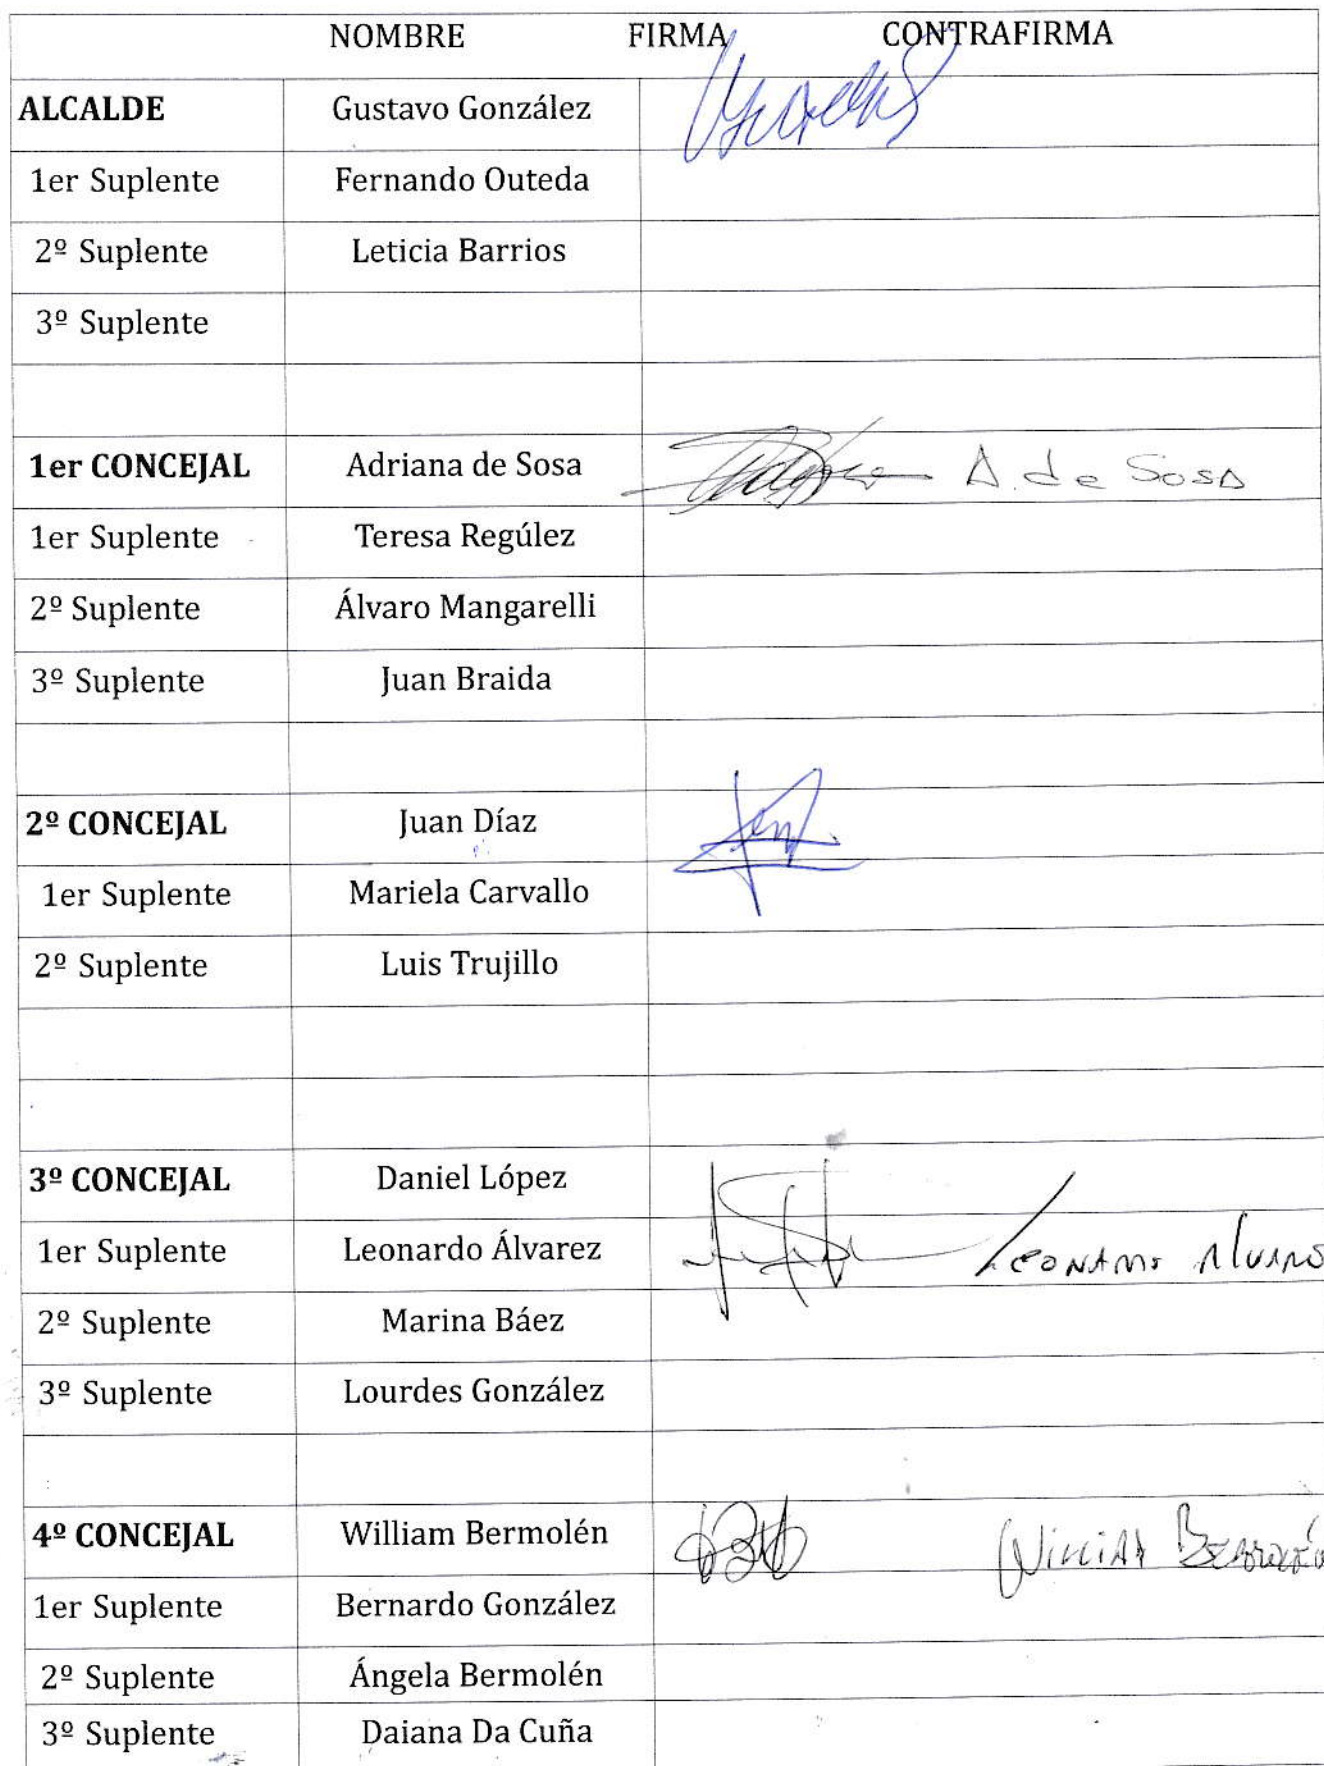 NOMBRE FIRMA CONTRAFIRMA
ALCALDE Gustavo González
1er Suplente Fernando Outeda
2º Suplente Leticia Barrios
3º Suplente
1er CONCEJAL Adriana de Sosa A. de Sosa
1er Suplente Teresa Regúlez
2º Suplente Álvaro Mangarelli
3º Suplente Juan Braida
2º CONCEJAL Juan Díaz
1er Suplente Mariela Carvallo
2º Suplente Luis Trujillo
3º CONCEJAL Daniel López
1er Suplente Leonardo Álvarez
2º Suplente Marina Báez
3º Suplente Lourdes González
4º CONCEJAL William Bermolén
1er Suplente Bernardo González
2º Suplente Ángela Bermolén
3º Suplente Daiana Da Cuña